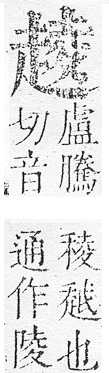 盧騰
切音
稜越也
通作陵